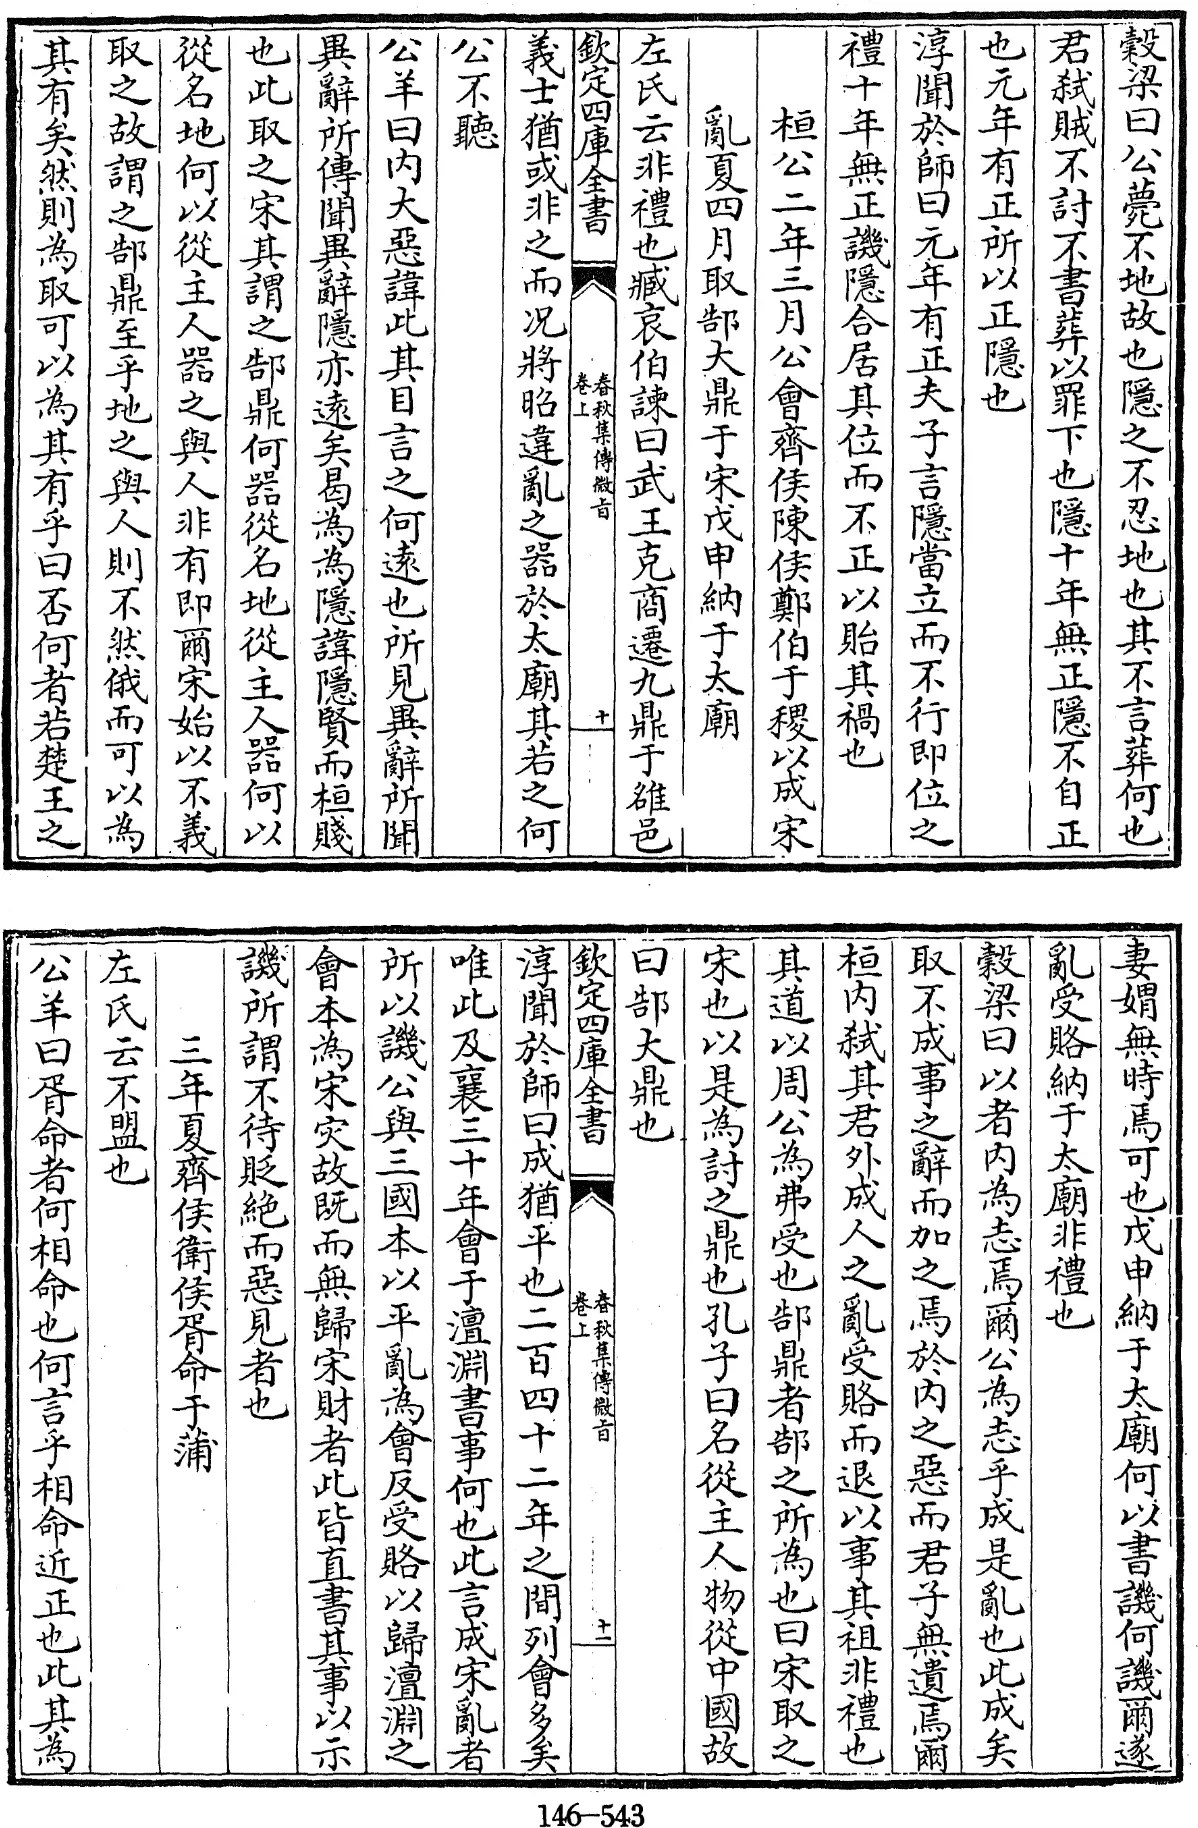 穀梁曰公薨不地故也隱之不忍地也其不言葬何也
君弑賊不討不書葬以罪下也隱十年無正隱不自正
也元年有正所以正隱也
淳聞於師曰元年有正夫子言隱當立而不行即位之
禮十年無正譏隱合居其位而不正以貽其禍也
桓公二年三月公會齊侯陳侯鄭伯于稷以成宋
亂夏四月取郜大鼎于宋戊申納于太廟
左氏云非禮也臧哀伯諫曰武王克商遷九鼎于雒邑
欽定四庫全書
春秋集傳微旨
卷上
十
義士猶或非之而况將昭違亂之器於太廟其若之何
公不聽
公羊曰内大惡諱此其目言之何遠也所見異辭所聞
異辭所傳聞異辭隱亦遠矣曷為為隱諱隱賢而桓賤
也此取之宋其謂之郜鼎何器從名地從主人器何以
從名地何以從主人器之與人非有即爾宋始以不義
取之故謂之郜鼎至乎地之與人則不然俄而可以為
其有矣然則為取可以為其有乎曰否何者若楚王之
妻媦無時焉可也戊申納于太廟何以書譏何譏爾遂
亂受賂納于太廟非禮也
穀梁曰以者内為志焉爾公為志乎成是亂也此成矣
取不成事之辭而加之焉於内之惡而君子無遺焉爾
桓内弑其君外成人之亂受賂而退以事其祖非禮也
其道以周公為弗受也郜鼎者郜之所為也曰宋取之
宋也以是為討之鼎也孔子曰名從主人物從中國故
曰郜大鼎也
欽定四庫全書
春秋集傳微旨
卷上
十一
淳聞於師曰成猶平也二百四十二年之間列會多矣
唯此及襄三十年會于澶淵書事何也此言成宋亂者
所以譏公與三國本以平亂為會反受賂以歸澶淵之
會本為宋灾故既而無歸宋財者此皆直書其事以示
譏所謂不待貶絶而惡見者也
三年夏齊侯衛侯胥命于蒲
左氏云不盟也
公羊曰胥命者何相命也何言乎相命近正也此其為
146-543